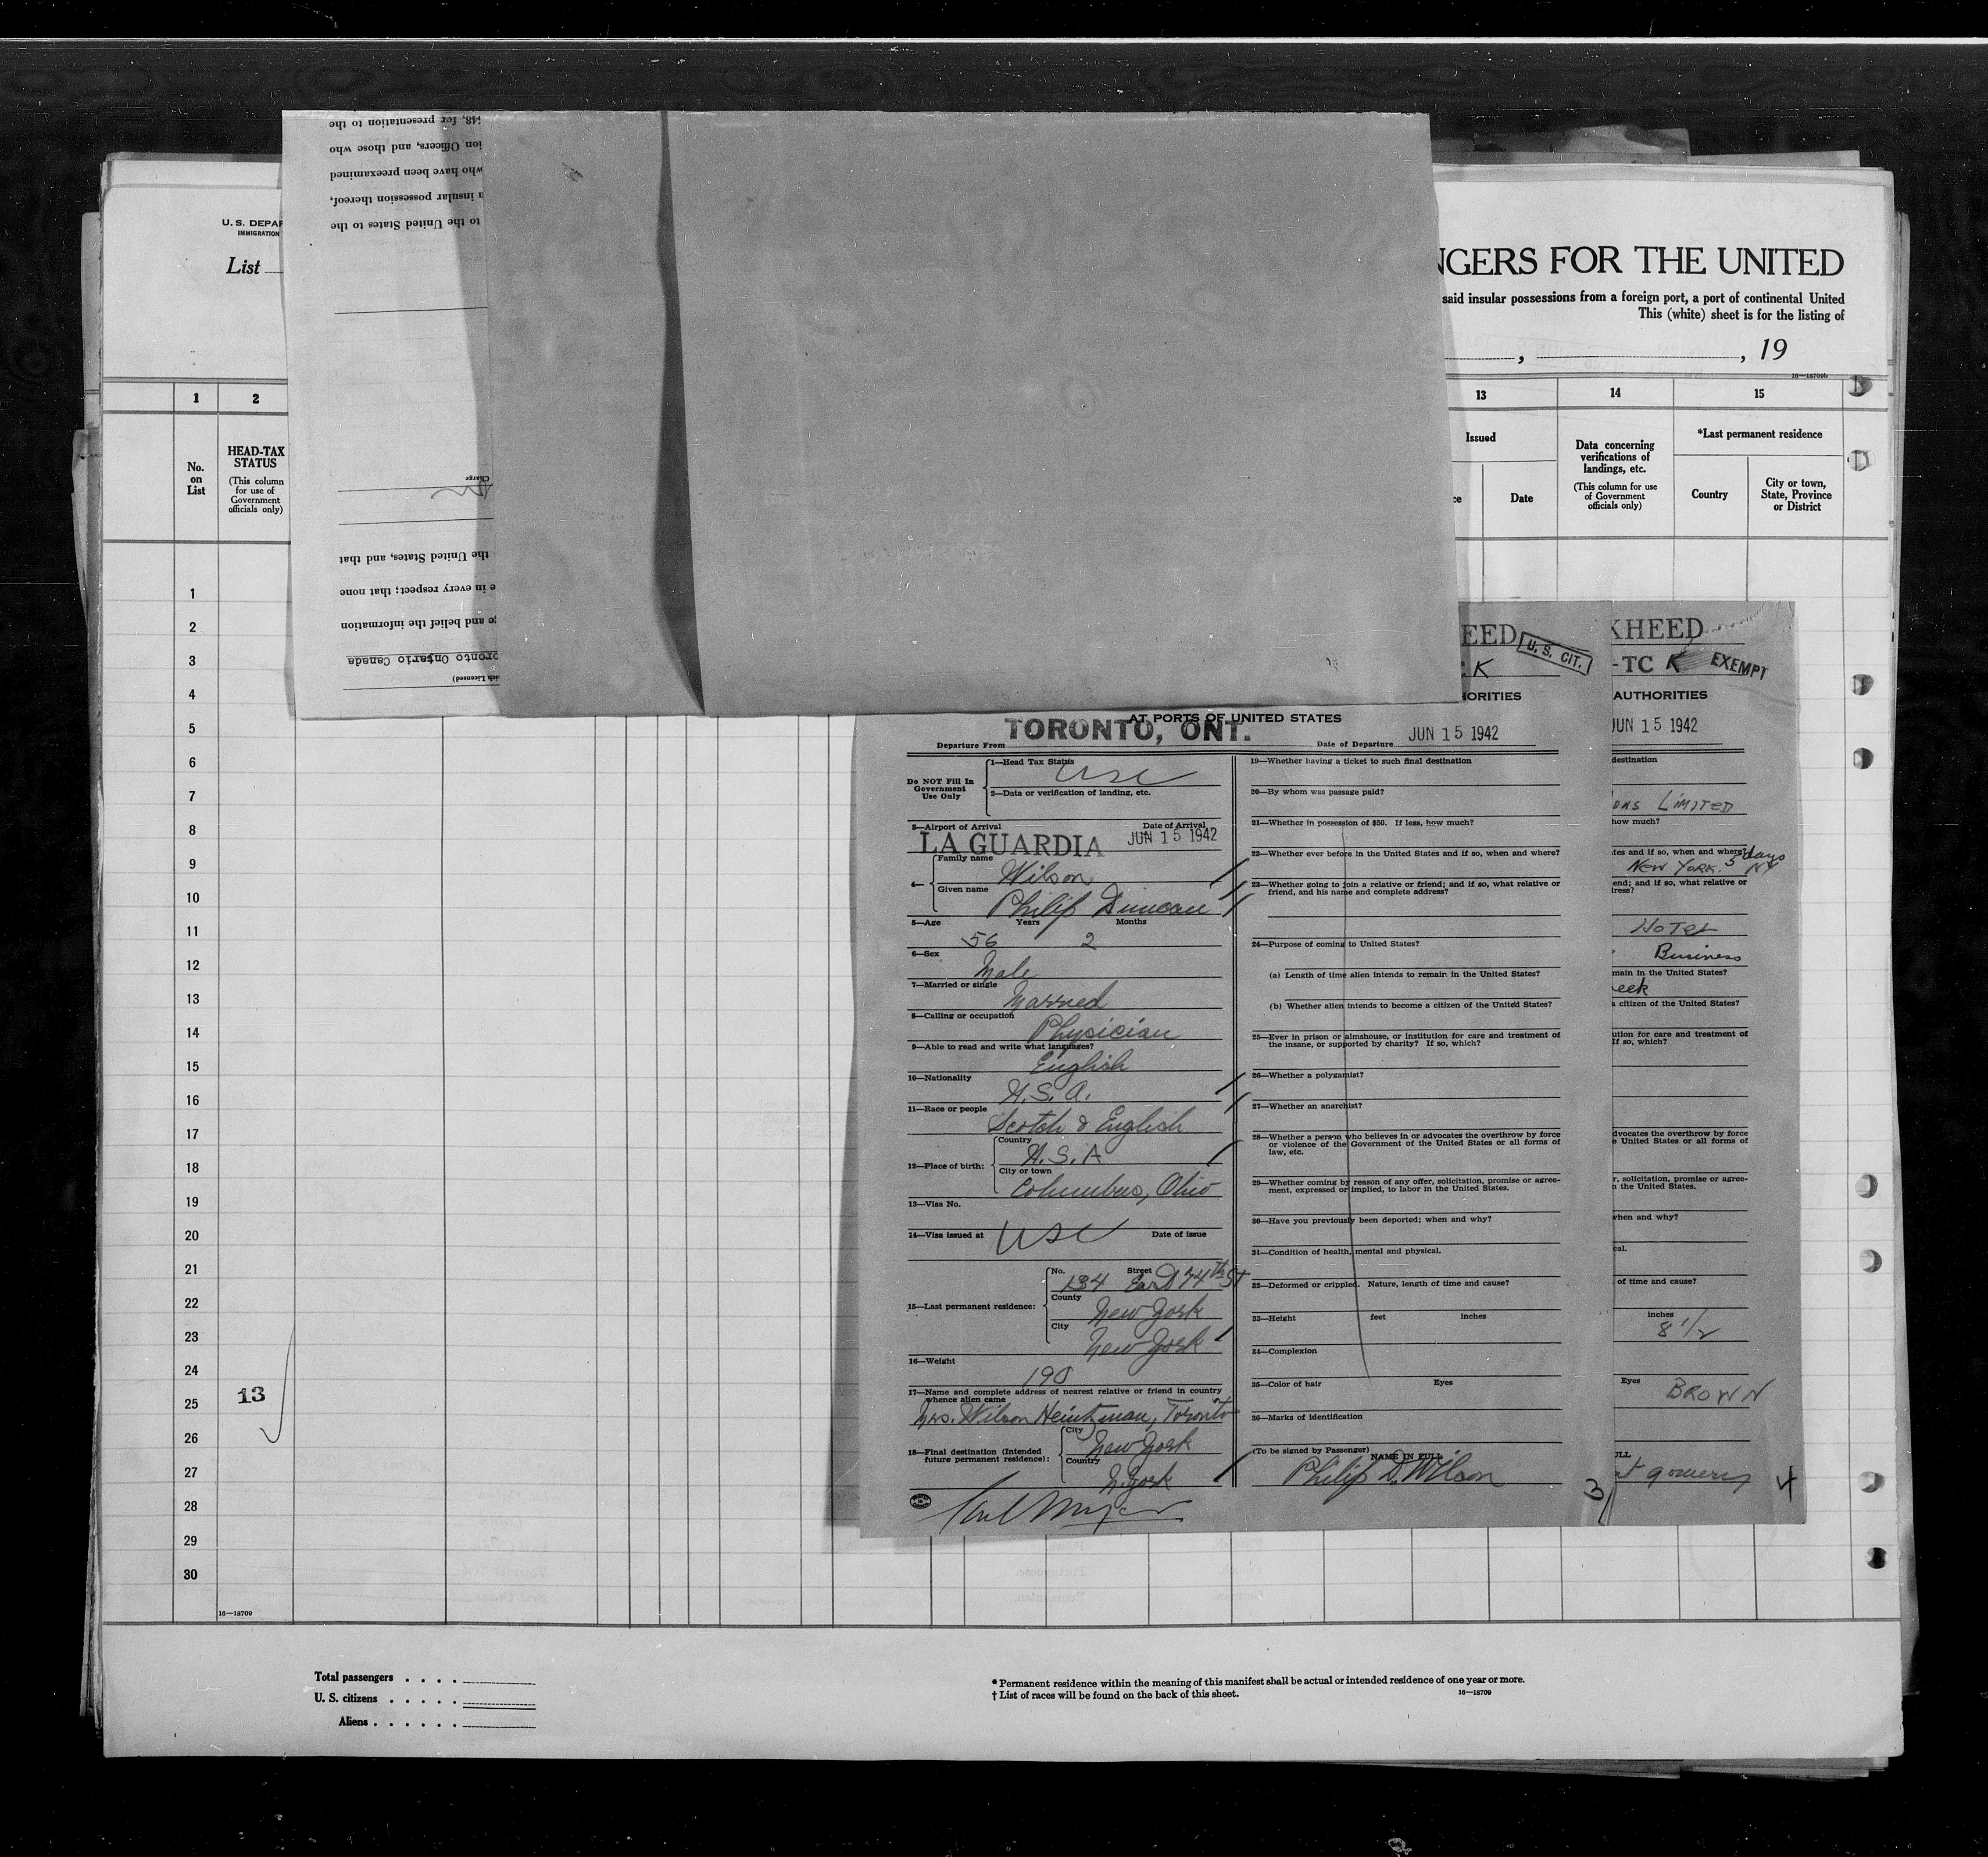 48, for presentation to the
ion Officers, and those who
who have been preexamined
insular possession thereof,
to the United States to the
Charge
the United States, and that
e in every respect; that none
ge and belief the information
oronto Ontario Canada
ich Licensed)
U. S. DEPAR
IMMIGRATION
List
NGERS FOR THE UNITED
said insular possessions from a foreign port, a port of continental United
This (white) sheet is for the listing of
, , 19
16—18709b
1 2 13 14 15
No. on List
HEAD-TAX STATUS
(This column for use of Government officials only)
Issued
ce
Date
Data concerning verifications of landings, etc.
(This column for use of Government officials only)
*Last permanent residence
Country
City or town, State, Province or District
1
2
3
4
5
6
7
8
9
10
11
12
13
14
15
16
17
18
19
20
21
22
23
24
25
26
27
28
29
30
13
16—18709
EED
U. S. CIT.
CK
HORITIES
AT PORTS OF UNITED STATES
TORONTO, ONT.
Departure From
Date of Departure JUN 15 1942
Do NOT Fill In Government Use Only
1—Head Tax Status
USC
2—Data or verification of landing, etc.
3—Airport of Arrival Date of Arrival
LA GUARDIA JUN 15 1942
4—
Family name
Wilson
Given name
Philip Duncan
5—Age Years Months
56 2
6—Sex
Male
7—Married or single
Married
8—Calling or occupation
Physician
9—Able to read and write what languages?
English
10—Nationality
U.S.A.
11—Race or people
Scotch & English
12—Place of birth:
Country
U.S.A
City or town
Columbus, Ohio
13—Visa No.
14—Visa issued at Date of issue
USC
15—Last permanent residence:
No. Street
134 East 74th St
County
New York
City
New York
16—Weight
190
17—Name and complete address of nearest relative or friend in country
whence alien came
Mrs. Wilson Heintzman, Toronto
18—Final destination (Intended
future permanent residence):
City
New York
Country
N. York
19—Whether having a ticket to such final destination
20—By whom was passage paid?
21—Whether in possession of $50. If less, how much?
22—Whether ever before in the United States and if so, when and where?
23—Whether going to join a relative or friend; and if so, what relative or
friend, and his name and complete address?
24—Purpose of coming to United States?
(a) Length of time alien intends to remain in the United States?
(b) Whether alien intends to become a citizen of the United States?
25—Ever in prison or almshouse, or institution for care and treatment of
the insane, or supported by charity? If so, which?
26—Whether a polygamist?
27—Whether an anarchist?
28—Whether a person who believes in or advocates the overthrow by force
or violence of the Government of the United States or all forms of
law, etc.
29—Whether coming by reason of any offer, solicitation, promise or agree-
ment, expressed or implied, to labor in the United States.
30—Have you previously been deported; when and why?
31—Condition of health, mental and physical.
32—Deformed or crippled. Nature, length of time and cause?
33—Height feet inches
34—Complexion
35—Color of hair Eyes
36—Marks of identification
(To be signed by Passenger)
NAME IN FULL
Philip D. Wilson
3
KHEED
-TC K
EXEMPT
AUTHORITIES
JUN 15 1942
destination
ons LIMITED
how much?
tes and if so, when and where?
5 days
NEW YORK. NY
end; and if so, what relative or
ress?
HOTEL
Business
main in the United States?
eek
a citizen of the United States?
ution for care and treatment of
If so, which?
dvocates the overthrow by force
e United States or all forms of
r, solicitation, promise or agree-
n the United States.
when and why?
cal.
of time and cause?
inches
8 1/2
Eyes
BROWN
ULL
nt gomery
4
Total passengers . . . .
U. S. citizens . . . . .
Aliens . . . . . .
* Permanent residence within the meaning of this manifest shall be actual or intended residence of one year or more.
† List of races will be found on the back of this sheet.
16—18709